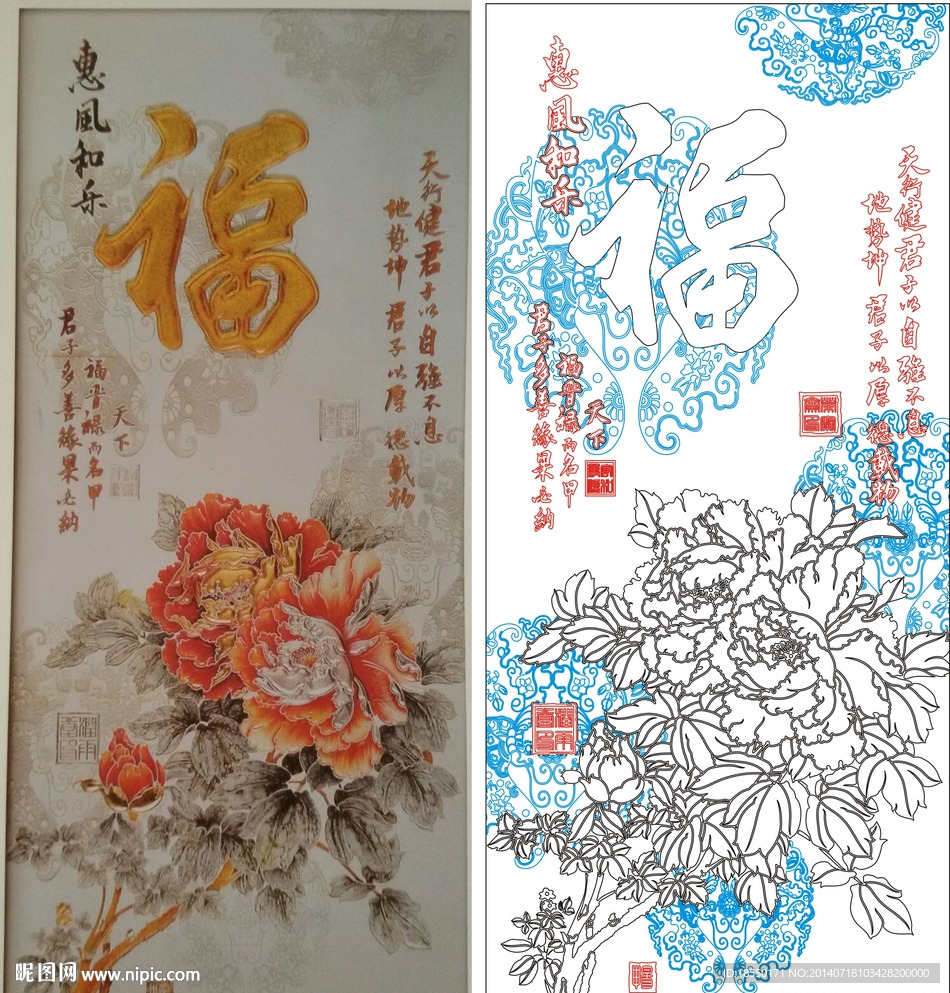 惠風和乐
福
天行健君子以自強不息
地勢坤 君子以厚德載物
君子多善緣果必納
福普禄而名甲
天下
惠風和乐
福
天行健君子以自強不息
地勢坤 君子以厚德載物
君子多善緣果必納
福普禄而名甲
天下
昵图网 www.nipic.com
ID:18550171 NO:20140718103428200000